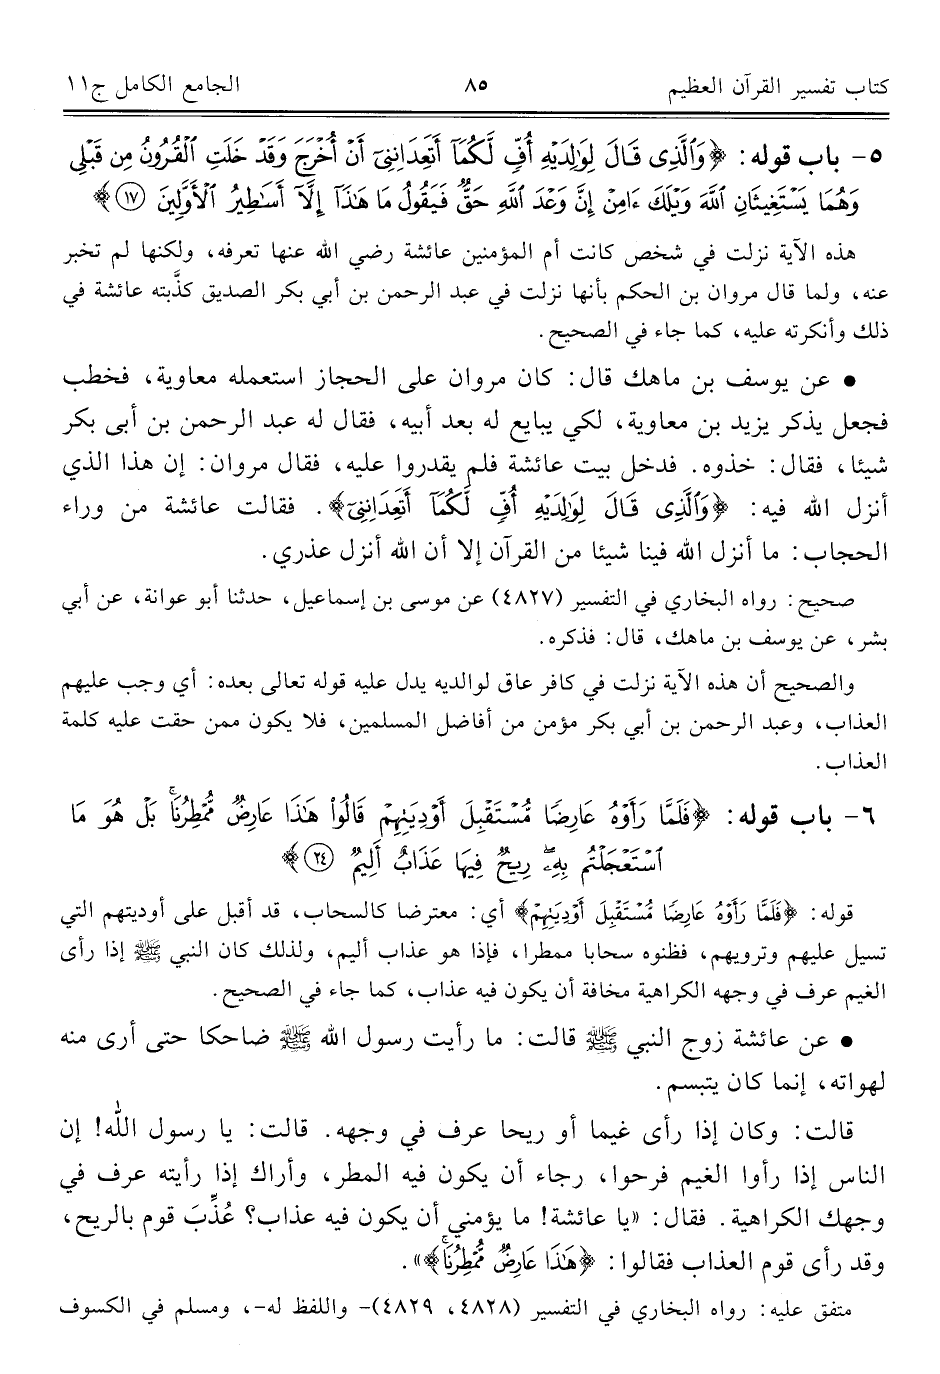 كتاب تفسير القرآن العظيم ٨٥ الجامع الكامل ج١١
٥- باب قوله: ﴿وَٱلَّذِى قَالَ لِوَٰلِدَيۡهِ أُفّٖ لَّكُمَآ أَتَعِدَانِنِىٓ أَنۡ أُخۡرَجَ وَقَدۡ خَلَتِ ٱلۡقُرُونُ مِن قَبۡلِى
وَهُمَا يَسۡتَغِيثَانِ ٱللَّهَ وَيۡلَكَ ءَامِنۡ إِنَّ وَعۡدَ ٱللَّهِ حَقّٞ فَيَقُولُ مَا هَٰذَآ إِلَّآ أَسَٰطِيرُ ٱلۡأَوَّلِينَ ١٧﴾
هذه الآية نزلت في شخص كانت أم المؤمنين عائشة رضي الله عنها تعرفه، ولكنها لم تخبر
عنه، ولما قال مروان بن الحكم بأنها نزلت في عبد الرحمن بن أبي بكر الصديق كذَّبته عائشة في
ذلك وأنكرته عليه، كما جاء في الصحيح.
• عن يوسف بن ماهك قال: كان مروان على الحجاز استعمله معاوية، فخطب
فجعل يذكر يزيد بن معاوية، لكي يبايع له بعد أبيه، فقال له عبد الرحمن بن أبى بكر
شيئا، فقال: خذوه. فدخل بيت عائشة فلم يقدروا عليه، فقال مروان: إن هذا الذي
أنزل الله فيه: ﴿وَٱلَّذِى قَالَ لِوَٰلِدَيۡهِ أُفّٖ لَّكُمَآ أَتَعِدَانِنِىٓ﴾. فقالت عائشة من وراء
الحجاب: ما أنزل الله فينا شيئا من القرآن إلا أن الله أنزل عذري.
صحيح: رواه البخاري في التفسير (٤٨٢٧) عن موسى بن إسماعيل، حدثنا أبو عوانة، عن أبي
بشر، عن يوسف بن ماهك، قال: فذكره.
والصحيح أن هذه الآية نزلت في كافر عاق لوالديه يدل عليه قوله تعالى بعده: أي وجب عليهم
العذاب، وعبد الرحمن بن أبي بكر مؤمن من أفاضل المسلمين، فلا يكون ممن حقت عليه كلمة
العذاب.
٦- باب قوله: ﴿فَلَمَّا رَأَوۡهُ عَارِضٗا مُّسۡتَقۡبِلَ أَوۡدِيَتِهِمۡ قَالُواْ هَٰذَا عَارِضٞ مُّمۡطِرُنَاۚ بَلۡ هُوَ مَا
ٱسۡتَعۡجَلۡتُم بِهِۦۖ رِيحٞ فِيهَا عَذَابٌ أَلِيمٞ ٢٤﴾
قوله: ﴿فَلَمَّا رَأَوۡهُ عَارِضٗا مُّسۡتَقۡبِلَ أَوۡدِيَتِهِمۡ﴾ أي: معترضا كالسحاب، قد أقبل على أوديتهم التي
تسيل عليهم وترويهم، فظنوه سحابا ممطرا، فإذا هو عذاب أليم، ولذلك كان النبي ﷺ إذا رأى
الغيم عرف في وجهه الكراهية مخافة أن يكون فيه عذاب، كما جاء في الصحيح.
• عن عائشة زوج النبي ﷺ قالت: ما رأيت رسول الله ﷺ ضاحكا حتى أرى منه
لهواته، إنما كان يتبسم.
قالت: وكان إذا رأى غيما أو ريحا عرف في وجهه. قالت: يا رسول الله! إن
الناس إذا رأوا الغيم فرحوا، رجاء أن يكون فيه المطر، وأراك إذا رأيته عرف في
وجهك الكراهية. فقال: «يا عائشة! ما يؤمني أن يكون فيه عذاب؟ عُذِّبَ قوم بالريح،
وقد رأى قوم العذاب فقالوا: ﴿هَٰذَا عَارِضٞ مُّمۡطِرُنَاۚ﴾».
متفق عليه: رواه البخاري في التفسير (٤٨٢٨، ٤٨٢٩)- واللفظ له-، ومسلم في الكسوف